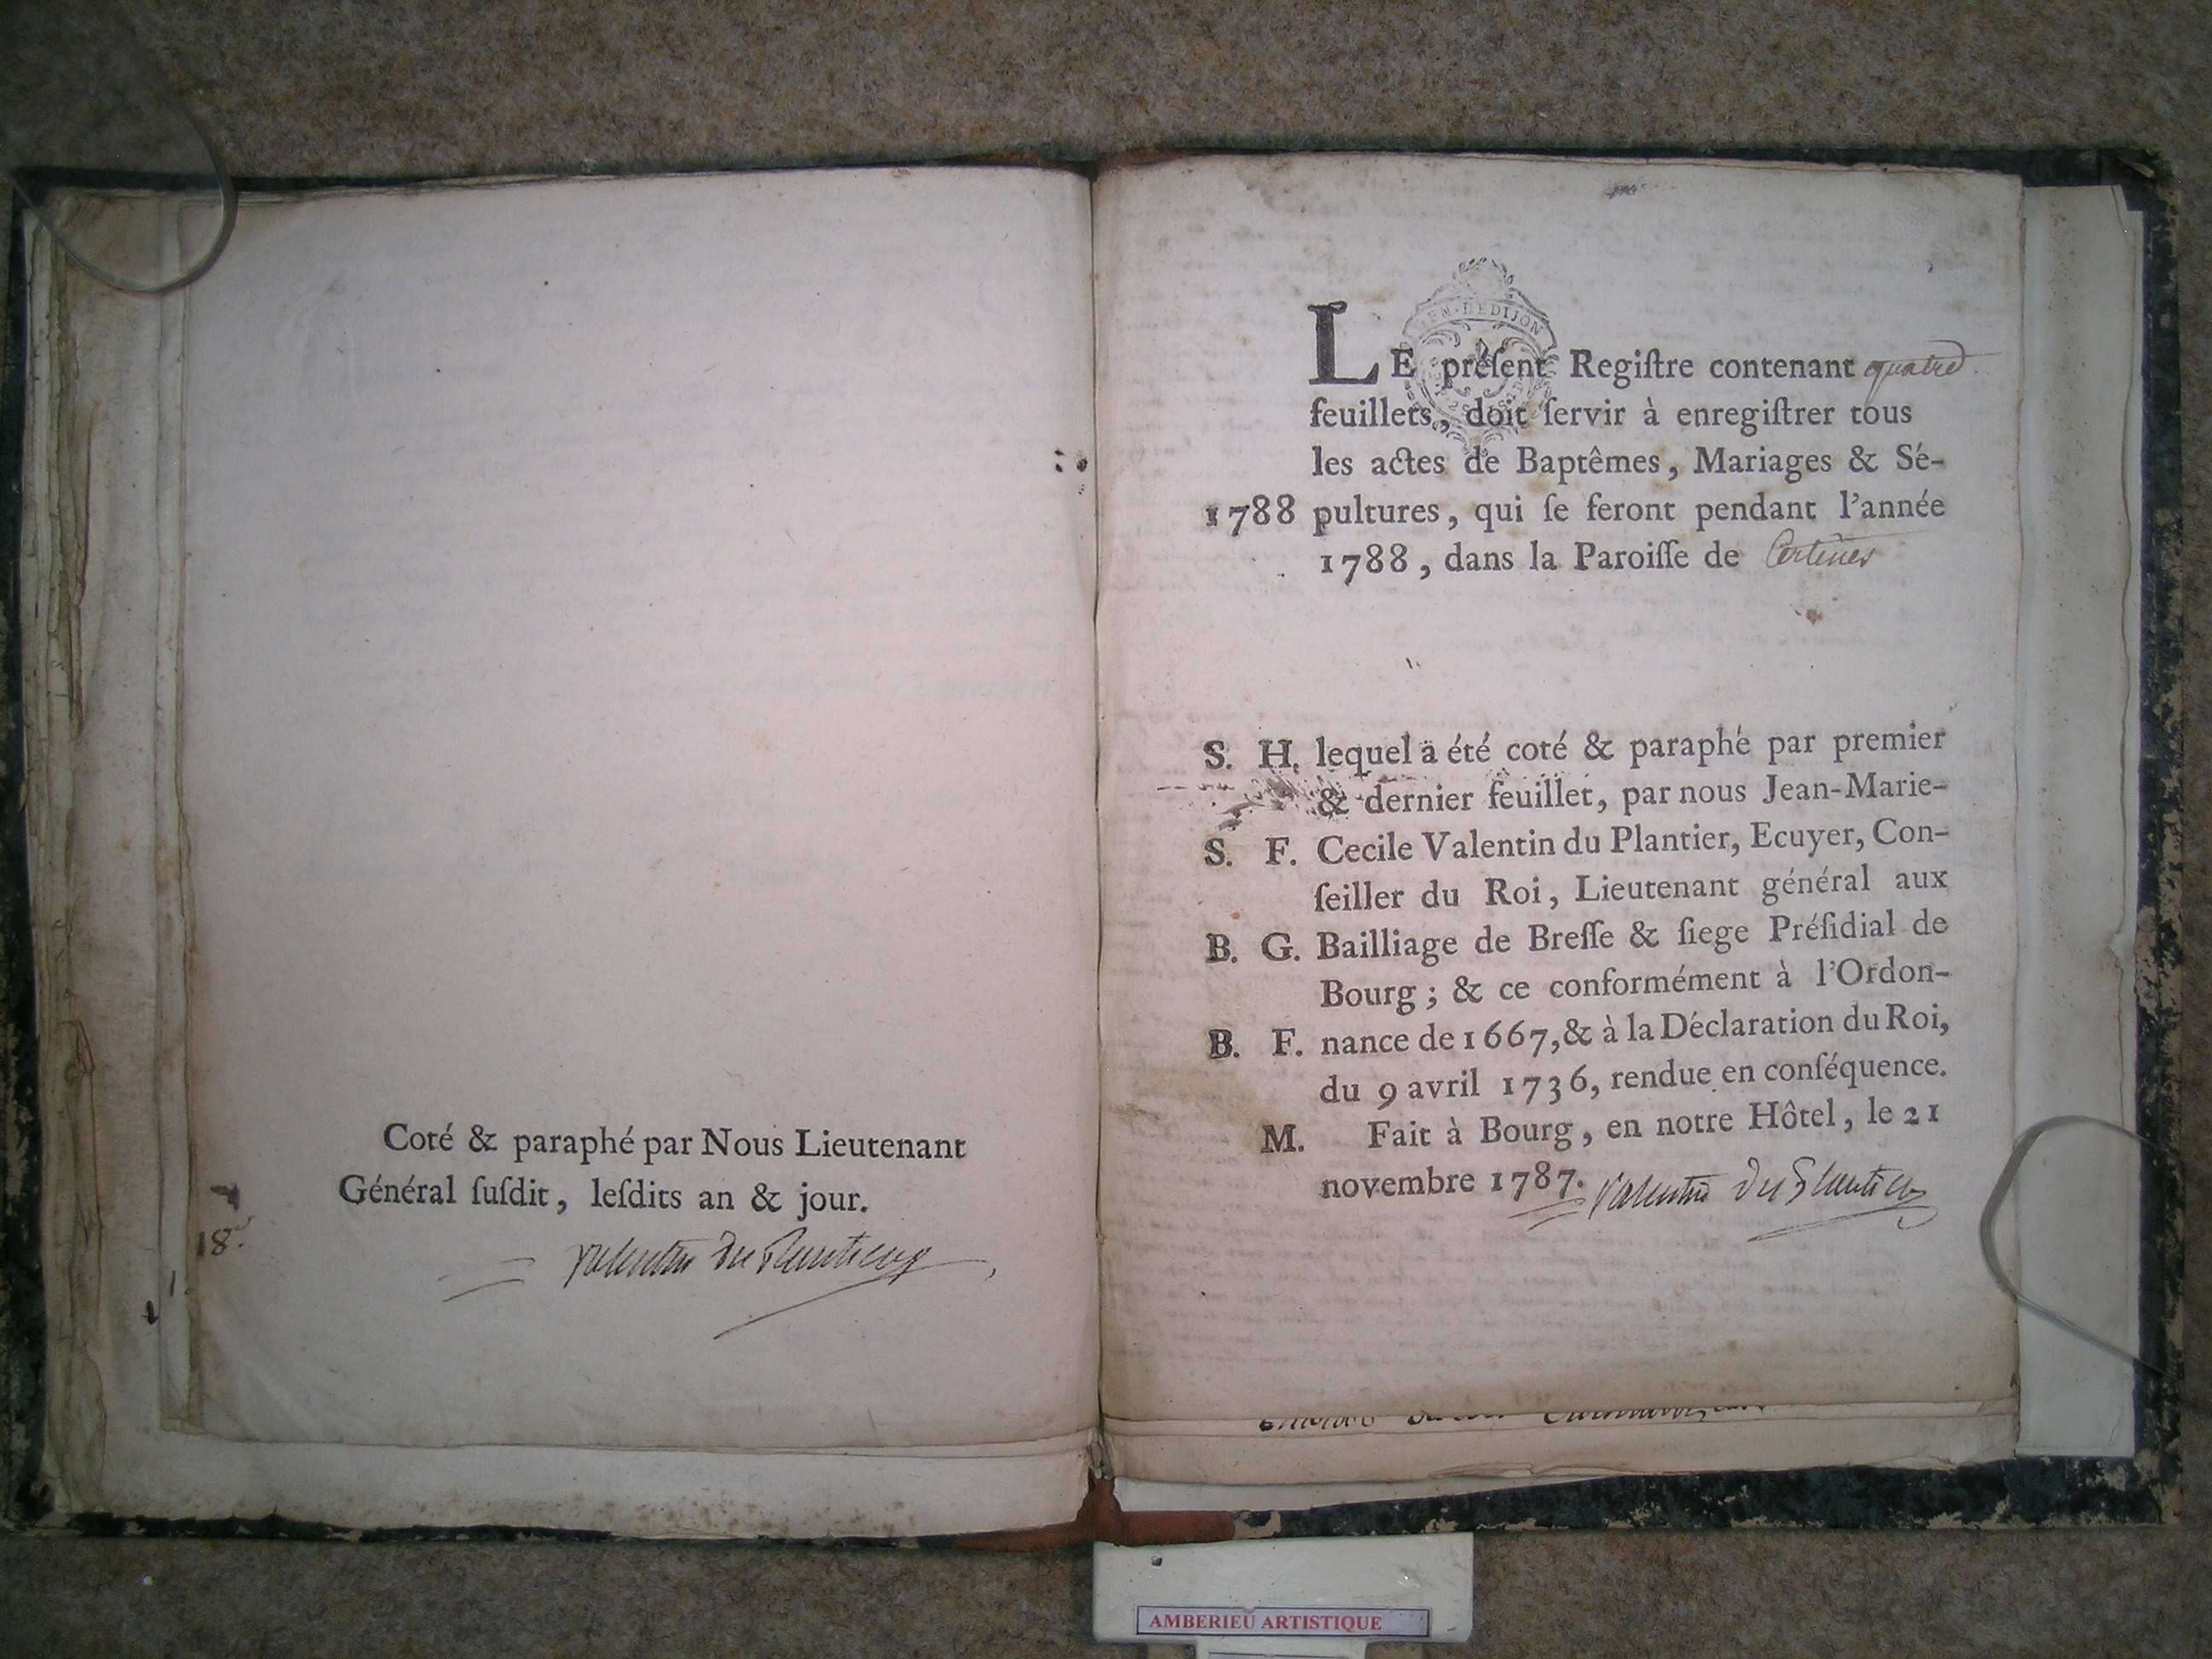 Coté & paraphé par Nous Lieutenant
Général ſuſdit, leſdits an & jour.
18.
Valentin du Plantier
GEN·DEDIJON
LE préſent Regiſtre contenant quatre
feuillets, doit ſervir à enregiſtrer tous
les actes de Baptêmes, Mariages & Sé-
1788 pultures, qui ſe feront pendant l'année
1788, dans la Paroiſſe de Certines
S. H. lequel a été coté & paraphé par premier
& dernier feuillet, par nous Jean-Marie-
S. F. Cecile Valentin du Plantier, Ecuyer, Con-
ſeiller du Roi, Lieutenant général aux
B. G. Bailliage de Breſſe & ſiege Préſidial de
Bourg; & ce conformément à l'Ordon-
B. F. nance de 1667, & à la Déclaration du Roi,
du 9 avril 1736, rendue en conſéquence.
M. Fait à Bourg, en notre Hôtel, le 21
novembre 1787. Valentin du Plantier
AMBERIEU ARTISTIQUE